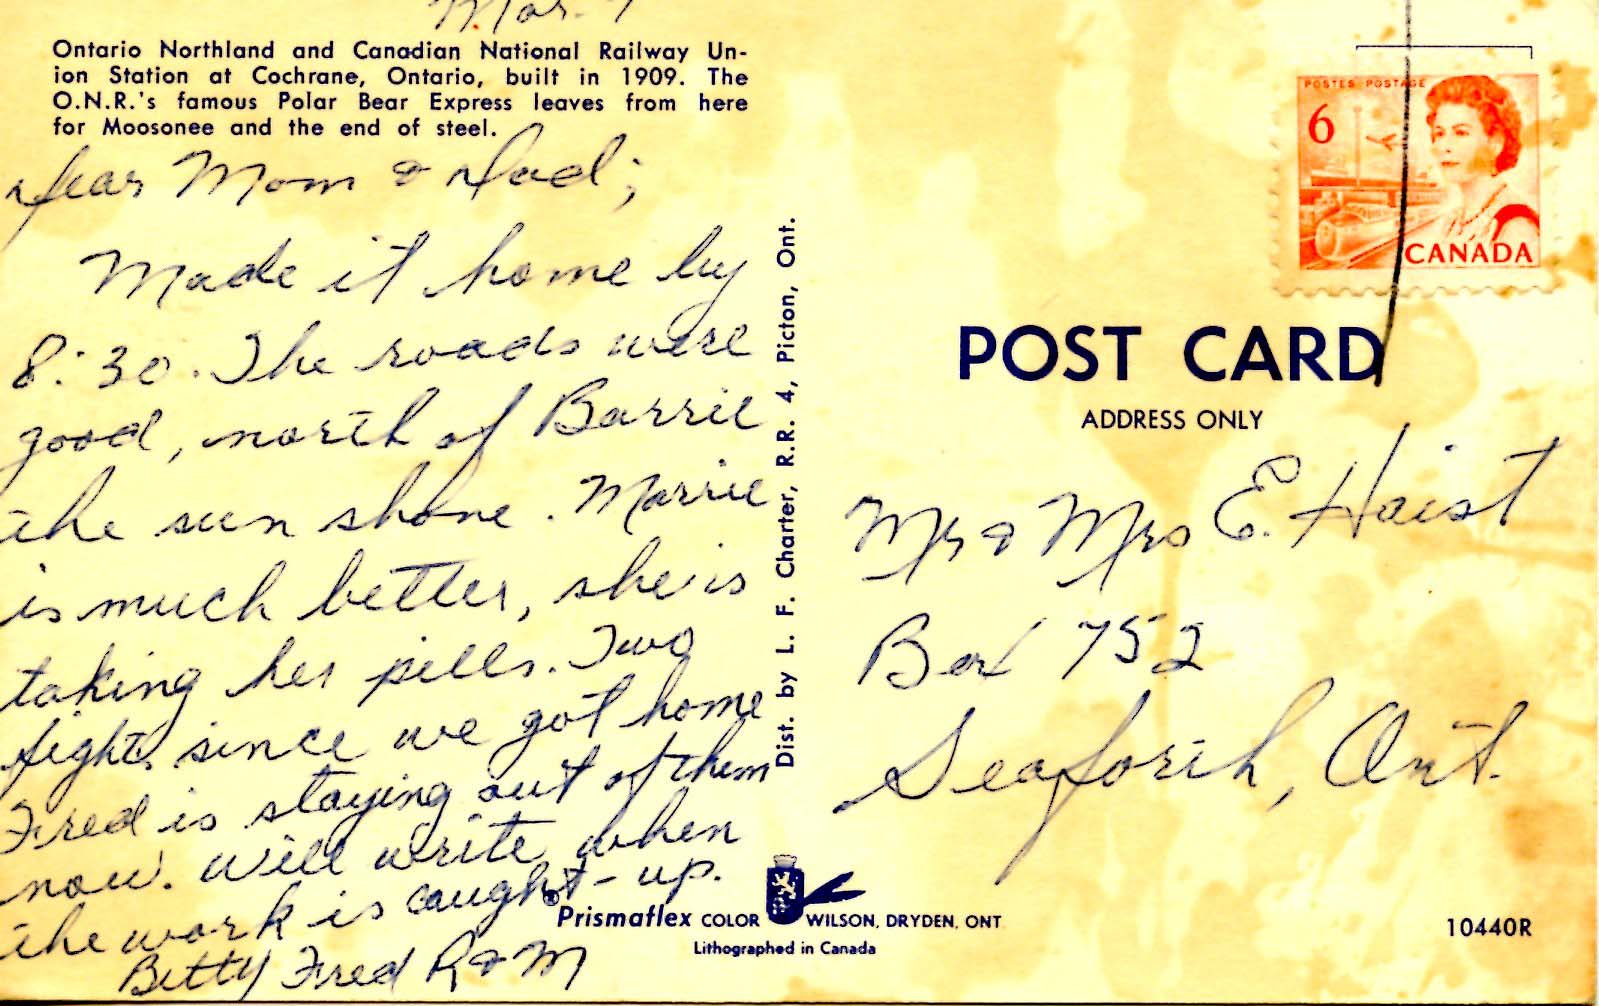 Mar. 7
Ontario Northland and Canadian National Railway Un-
ion Station at Cochrane, Ontario, built in 1909. The
O.N.R.'s famous Polar Bear Express leaves from here
for Moosonee and the end of steel.
Dear Mom & Dad;
Made it home by
8:30. The roads were
good, north of Barrie
the sun shone. Marrie
is much better, she is
taking her pills. Two
fights since we got home
Fred is staying out of them
now. Will write when
the work is caught-up.
Betty Fred R & M
Dist. by L. F. Charter, R.R. 4, Picton, Ont.
POSTES POSTAGE
6
CANADA
POST CARD
ADDRESS ONLY
Mr & Mrs E. Haist
Box 752
Seaforth, Ont.
® Prismaflex COLOR WILSON, DRYDEN, ONT
Lithographed in Canada
10440R